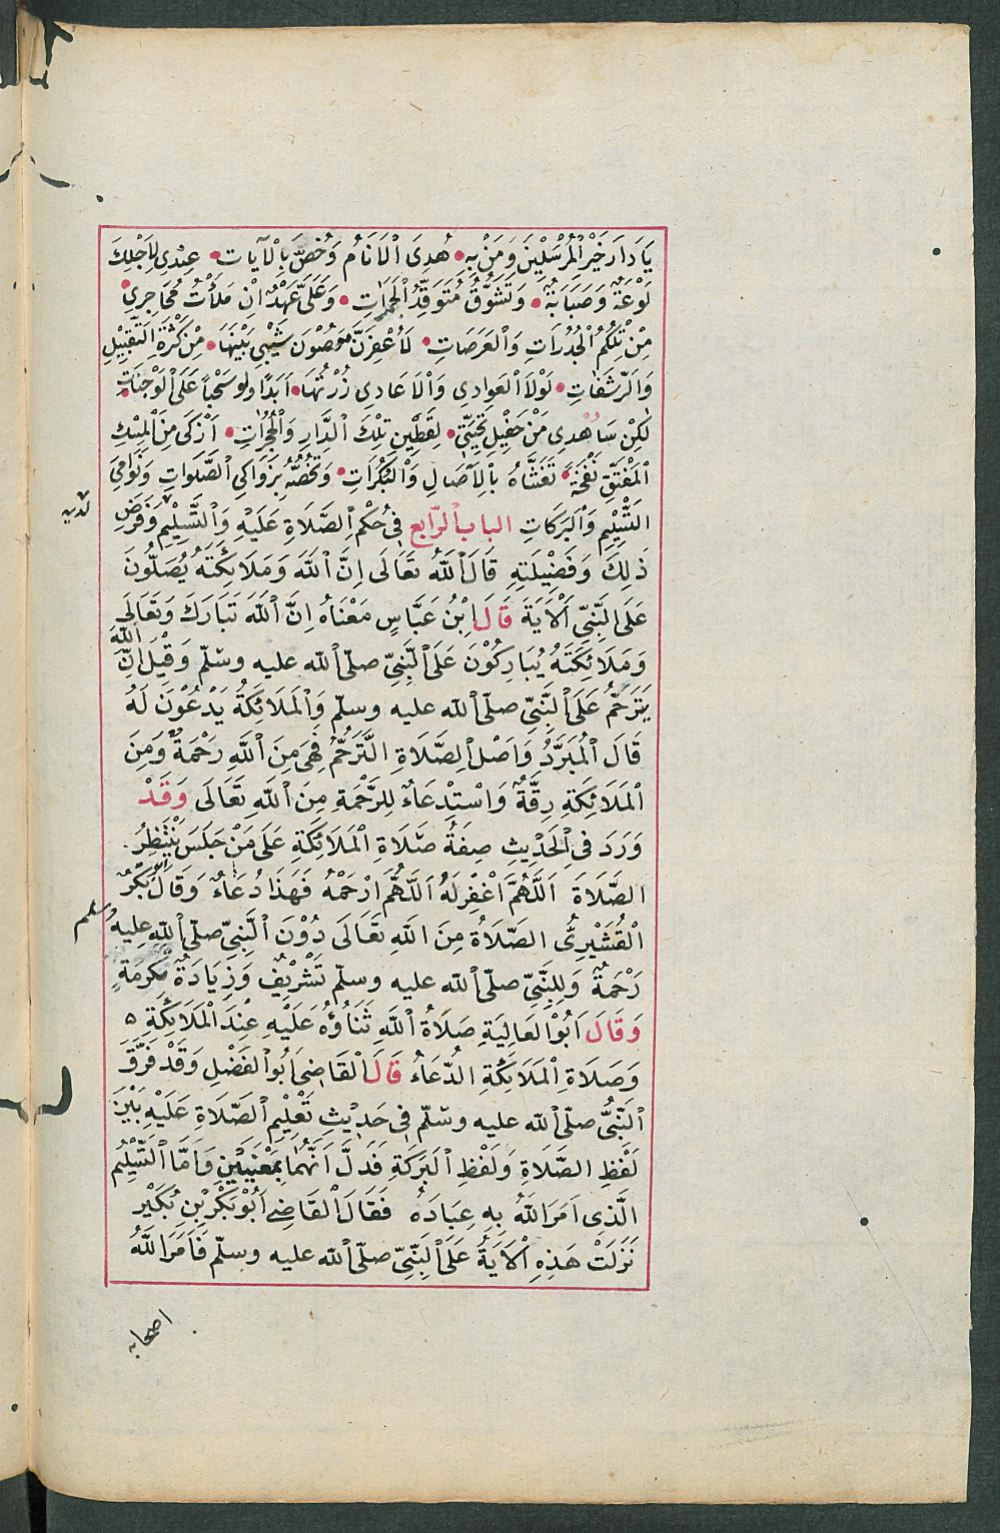 يَا دَارَ خَيْرِ الْمُرْسَلِيْنَ وَمَنْ بِهِ • هُدِىَ الْاَنَامُ وَخُصَّ بِالْآيَاتِ • عِنْدِى لِاَجْلِكَ
لَوْعَةٌ وَصَبَابَةٌ • وَتَشَوُّقٌ مُتَوَقِّدُ الْجَمَرَاتِ • وَعَلَىَّ عَهْدٌ اِنْ مَلَأْتُ مَحَاجِرِى •
مِنْ تِلْكُمُ الْجُدُرَاتِ وَالْعَرَصَاتِ • لَاُعَفِّرَنَّ مَصُوْنَ شَيْبِى بَيْنَهَا • مِنْ كَثْرَةِ التَّقْبِيْلِ
وَالرَّشَفَاتِ • لَوْلَا الْعَوَادِى وَالْاَعَادِى زُرْتُهَا • اَبَدًا ولو سَحْبًا عَلَى الْوَجَنَاتِ •
لٰكِنْ سَاُهْدِى مَنْ حَفِيْلِ تَحِيَّتِى • لِقَطِيْنِ تِلْكَ الدَّارِ وَالْحُجُرَاتِ • اَزْكَى مِنَ الْمِسْكِ
الْمُفَتَّقِ نَفْحَةً • تَغْشَاهُ بِالْآصَالِ وَالْبُكُرَاتِ • وَتَخُصُّهُ بِزَوَاكِى الصَّلَوَاتِ وَنَوَامِىَ
التَّسْلِيْمِ وَالْبَرَكَاتِ الباب الرّابع فِى حُكْمِ الصَّلَاةِ عَلَيْهِ وَالتَّسْلِيْمِ وَفَرْضِ
ذٰلِكَ وَفَضِيْلَتِهِ قَالَ اللّٰهُ تَعَالَى اِنَّ اللّٰهَ وَمَلَائِكَتَهُ يُصَلُّونَ
عَلَى النَّبِىِّ الْاٰيَةَ قَالَ ابْنُ عَبَّاسٍ مَعْنَاهُ اِنَّ اللّٰهَ تَبَارَكَ وَتَعَالَى
وَمَلَائِكَتَهُ يُبَارِكُوْنَ عَلَى النَّبِىِّ صلّى اللّٰه عليه وسلّم وَقِيْلَ اِنَّ اللّٰهَ
يَتَرَحَّمُ عَلَى النَّبِىِّ صلّى اللّٰه عليه وسلّم وَالْمَلَائِكَةُ يَدْعُوْنَ لَهُ
قَالَ الْمُبَرَّدُ وَاَصْلُ الصَّلَاةِ التَّرَحُّمُ فَهِىَ مِنَ اللّٰهِ رَحْمَةٌ وَمِنَ
الْمَلَائِكَةِ رِقَّةٌ وَاسْتِدْعَاءٌ لِلرَّحْمَةِ مِنَ اللّٰهِ تَعَالَى وَقَدْ
وَرَدَ فِى الْحَدِيْثِ صِفَةُ صَلَاةِ الْمَلَائِكَةِ عَلَى مَنْ جَلَسَ يَنْتَظِرُ
الصَّلَاةَ اَللّٰهُمَّ اغْفِرْ لَهُ اَللّٰهُمَّ ارْحَمْهُ فَهٰذَا دُعَاءٌ وَقَالَ اَبُو بَكْرٍ
الْقُشَيْرِىُّ الصَّلَاةُ مِنَ اللّٰهِ تَعَالَى دُوْنَ النَّبِىِّ صلّى اللّٰه عليه وسلم
رَحْمَةٌ وَلِلنَّبِىِّ صلّى اللّٰه عليه وسلّم تَشْرِيْفٌ وَزِيَادَةُ تَكْرِمَةٍ
وَقَالَ اَبُو الْعَالِيَةِ صَلَاةُ اللّٰهِ ثَنَاؤُهُ عَلَيْهِ عِنْدَ الْمَلَائِكَةِ ه
وَصَلَاةُ الْمَلَائِكَةِ الدُّعَاءُ قَالَ الْقَاضِى اَبُو الْفَضْلِ وَقَدْ فَرَّقَ
النَّبِىُّ صلّى اللّٰه عليه وسلّم فِى حَدِيْثِ تَعْلِيْمِ الصَّلَاةِ عَلَيْهِ بَيْنَ
لَفْظِ الصَّلَاةِ وَلَفْظِ الْبَرَكَةِ فَدَلَّ اَنَّهُمَا بِمَعْنَيَيْنِ وَاَمَّا التَّسْلِيْمُ
الَّذِى اَمَرَ اللّٰهُ بِهِ عِبَادَهُ فَقَالَ الْقَاضِى اَبُوْ بَكْرِ بْنِ بُكَيْرٍ
نَزَلَتْ هٰذِهِ الْاٰيَةُ عَلَى النَّبِىِّ صلّى اللّٰه عليه وسلّم فَاَمَرَ اللّٰهُ
اصحابه